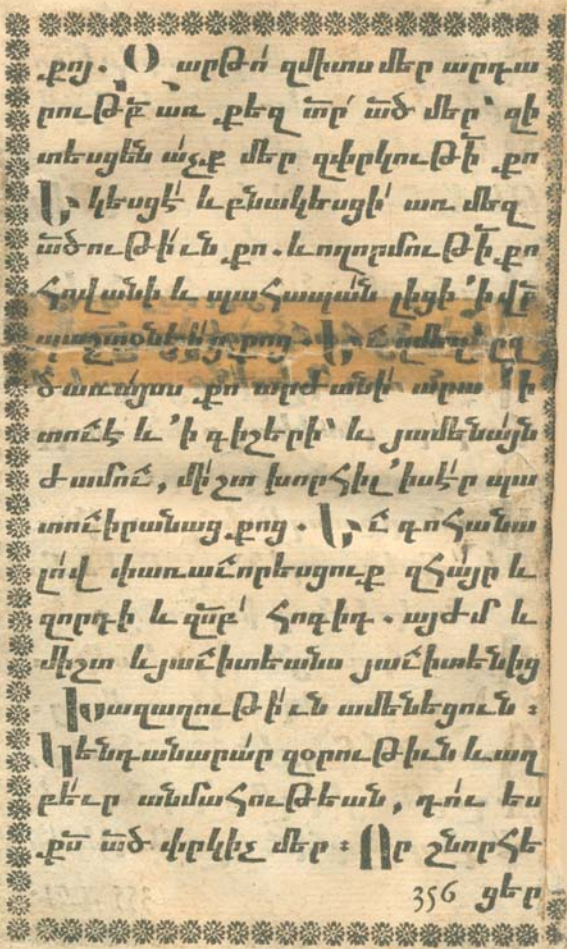 քոյ. Ո արթո՛ զմիտս մեր արդա
րութբ̄ առ քեզ տ̄ր՛ ած̄ մեր՝ զի
տեսցեն ա՛չք մեր զփրկութի̄ քո
Եկեսցէ՛ և բնակեսցի՛ առ մեզ
ած̄ութի՛ւն քո. և ողորմութի̄ քո
հովանի և պահապա՛ն լիցի ՚ի վր̄
պաշտօնէիցս քոց. Եւ զմեզ՛ ըզ
ծառայսս քո արժանի արա՛ ՚ի
տուէ և ՚ի գիշերի՝ և յամենա՛յն
ժամու, մի՛շտ խորհիլ ՚ի սէ՛ր պա
տուիրանաց քոց. Եւ գոհանա
լո՛վ փառաւորեսցուք զհա՛յր և
զորդի և զս̄բ՛ հոգիդ. այժմ և
միշտ և յաւիտեանս յաւիտենից
Խաղաղութի՛ւն ամենեցուն :
Կենդանարա՛ր զօրութիւն և աղ
բե՛ւր անմահութեան, դո՛ւ ես
քս̄ ած̄ փրկիչ մեր : Որ շնորհե
356 ցեր